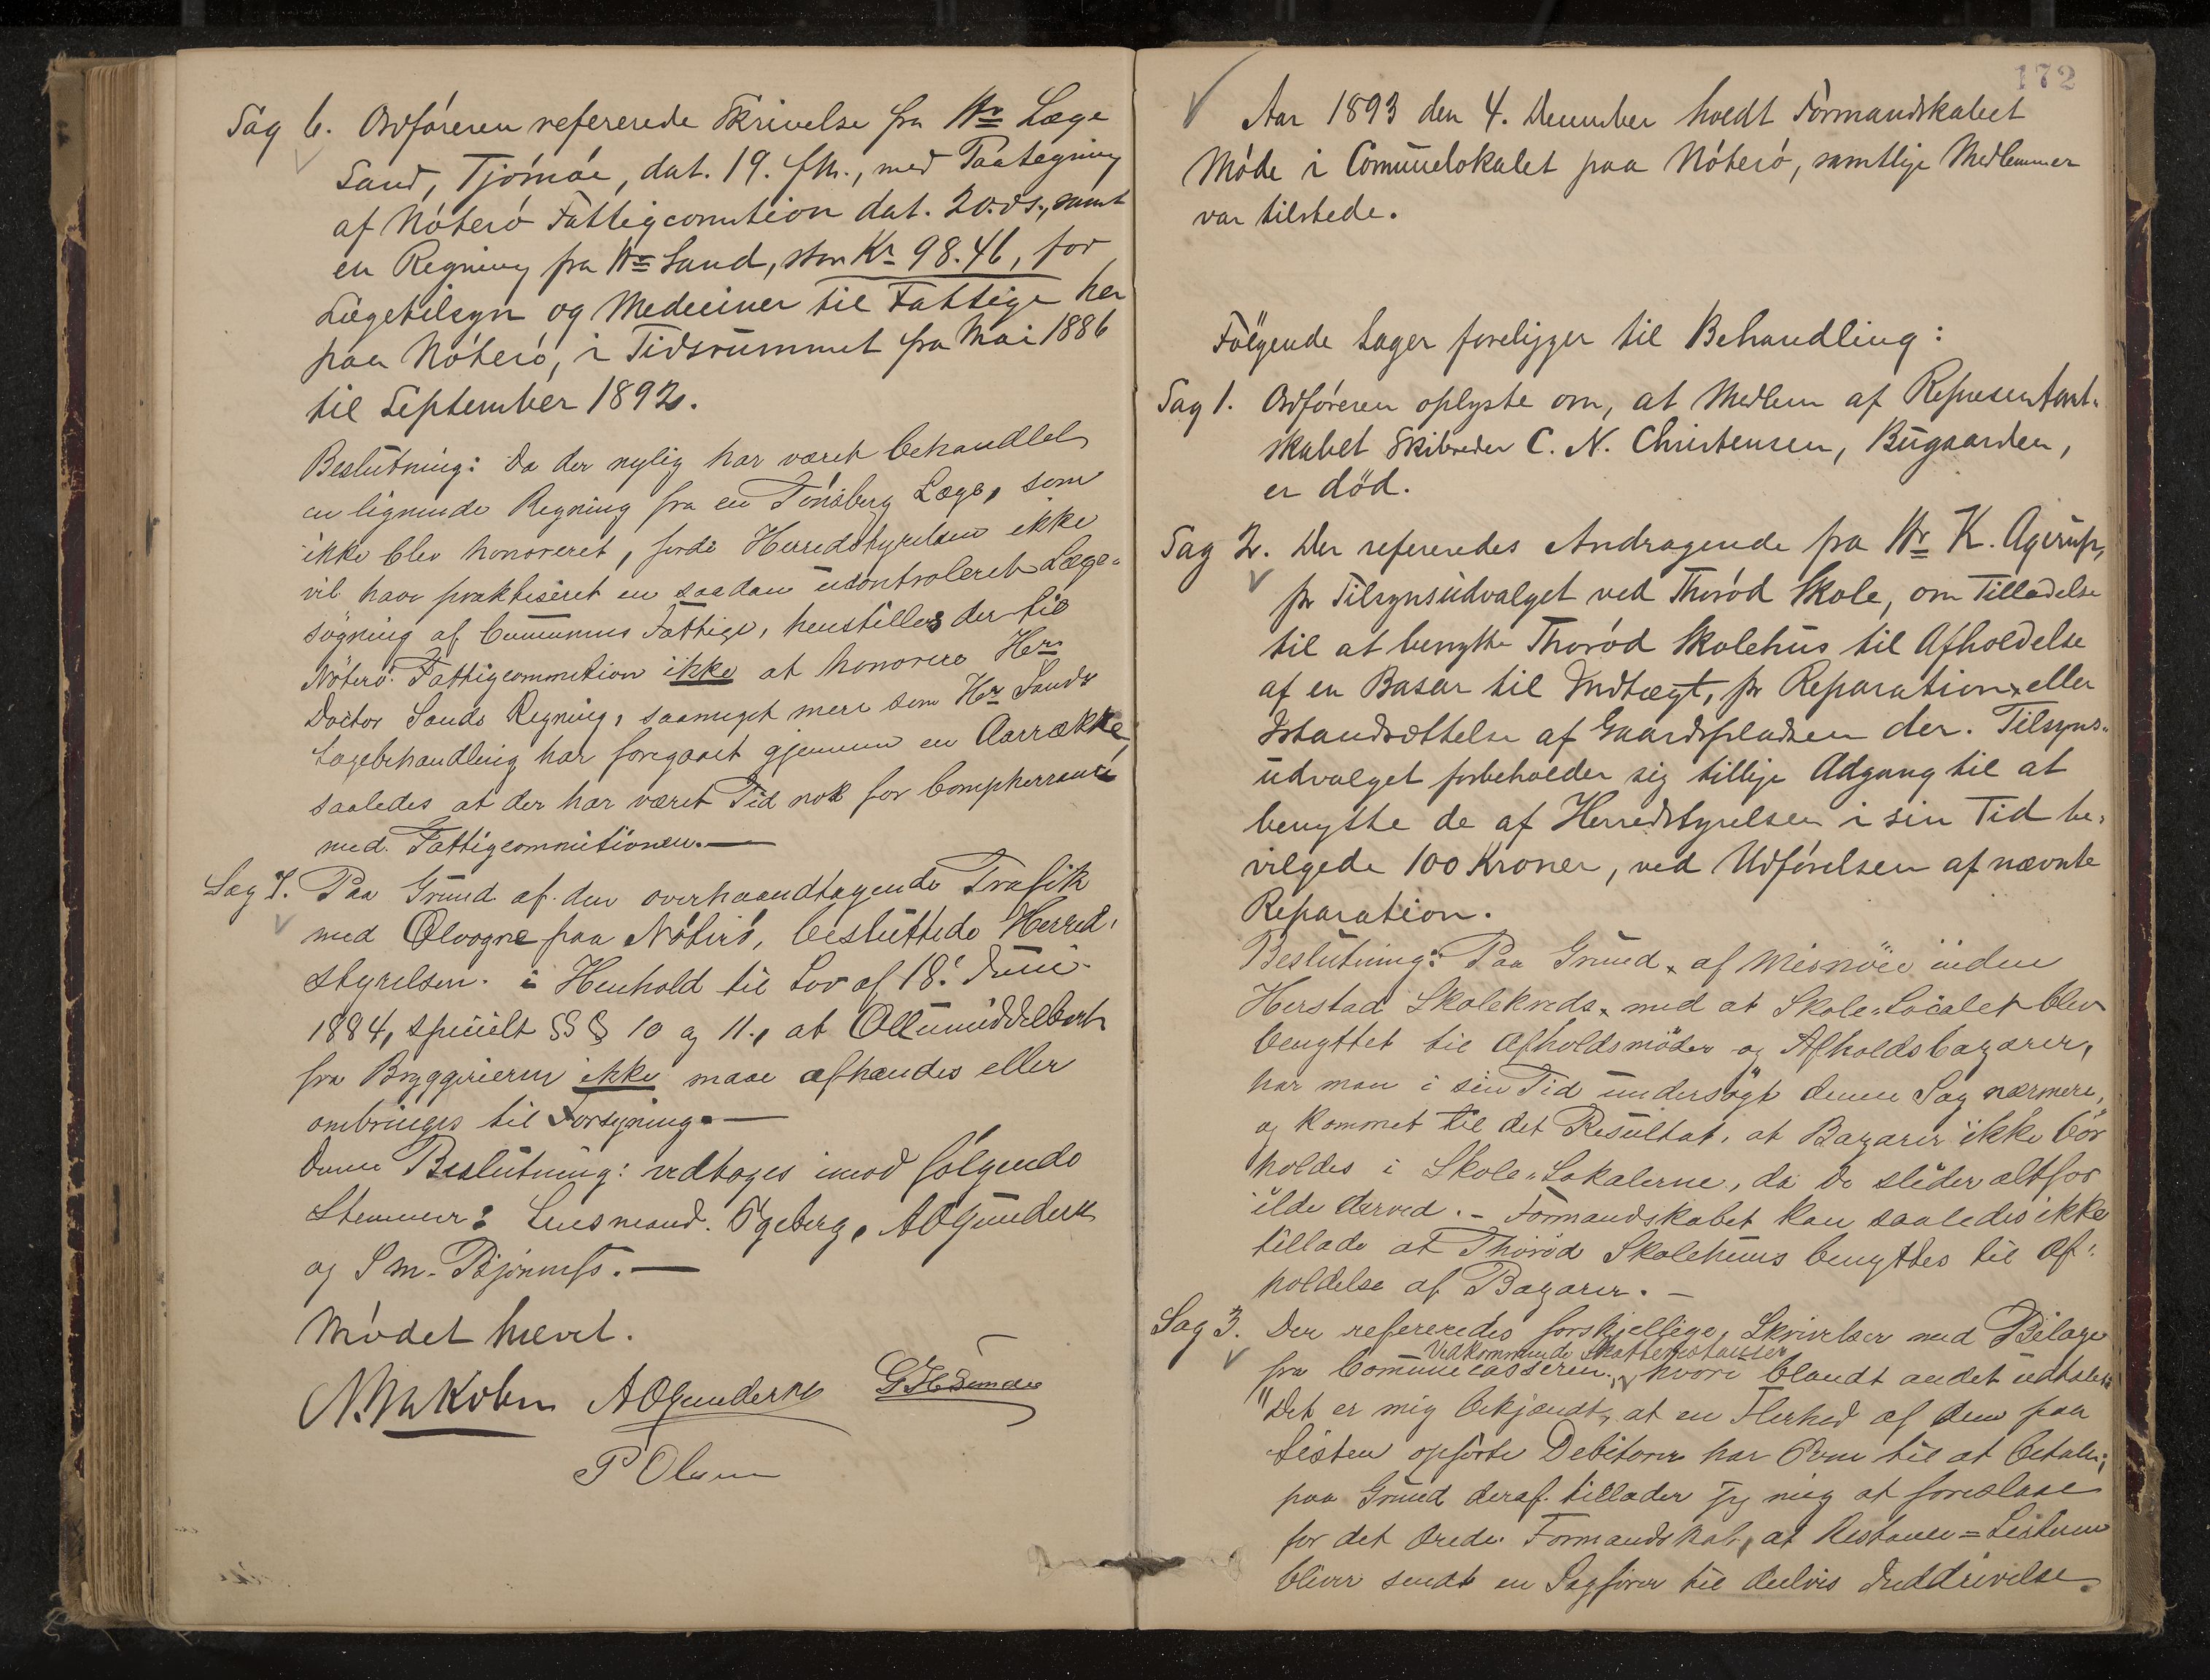 Sag 6. Ordføreren refererede Skrivelse fra Hr Læge
Sand, Tjømøe, dat. 19. f.M., med Paategning
af Nøterø Fattigcomution dat. 20. ds., samt
en Regning fra Hr Sand, stor Kr 98.46, for
Lægetilsyn og Mediciner til Fattige her
paa Nøterø, i Tidsrummet fra Mai 1886
til September 1892.
Beslutning: Da der nylig har været behandlet
en lignende Regning fra en Tønsberg Læge, som
ikke blev honoreret, fordi Herredstyrelsen ikke
vil have praktiseret en saadan ucontroleret Læge-
søgning af Communens Fattige, henstilles der til
Nøterø Fattigcommition ikke at honorere Herr
Doctor Sands Regning, saameget mere som Hr Sands
Lægebehandling har foregaaet gjennem en Aarrække,
saaledes at der har været Tid nok for
med Fattigcommitionen.—
Sag 7. Paa Grund af den overhaandtagende Trafik
med Ølvogne paa Nøterø, besluttede Herred-
styrelsen i Henhold til Lov af 18. Juni
1884, specielt §§§ 10 og 11., at
fra Bryggerierne ikke maae afhændes eller
ombringes til Forsyning.—
Denne Beslutning: vedtages imod følgende
Stemmer: Lensmand Ogeberg, A O Gundersen
og S M. Bjønness.—
Mødet hævet.
A O Gundersen
P Olsen
172
Aar 1893 den 4. December holdt Formandskabet
Møde i Comunelokalet paa Nøterø, samtlige Medlemmer
var tilstede.
Følgende Sager foreligger til Behandling:
Sag 1. Ordføreren oplyste om, at Medlem af Representant-
skabet Skibreder C. N. Christensen, Bugaarden,
er død.
Sag 2. Der refereredes Andragende fra Hr K. Agerup,
for Tilsynsudvalget ved Thorød Skole, om Tilladelse
til at benytte Thorød Skolehus til Afholdelse
af en Basar til Indtægt, for Reparation, eller
Istandsættelse af Gaardspladsen der. Tilsyns-
udvalget forbeholder sig tillige Adgang til at
benytte de af Herredstyrelsen i sin Tid be-
vilgede 100 Kroner, ved Udførelsen af nævnte
Reparation.
Beslutning: Paa Grund, af Misnøie inden
Herstad Skolekreds, med at Skole-Localet blev
benyttet til Afholdsmøder og Afholdsbazarer,
har man i sin Tid undersøgt denne Sag nærmere,
og kommet til det Resultat, at Bazarer ikke bør
holdes i Skole-Lokalerne, da de slider altfor
ilde derved.— Formandskabet kan saaledes ikke
tillade at Thorød Skolehuus benyttes til Af-
holdelse af Bazarer.—
Sag 3. Der refereredes forskjellige, Skrivelser med Bilage
Vedkommende Skatterestancer
fra Comunecassereren, hvori blandt andet udtales:
"Det er mig bekjendt, at en Flerhed af dem paa
Listen opførte Debitorer har Evne til at betale;
paa Grund deraf tillader jeg mig at foreslaae
for det ærede Formandskab, at Restance-Listerne
bliver sendt en Sagfører til delvis Inddrivelse